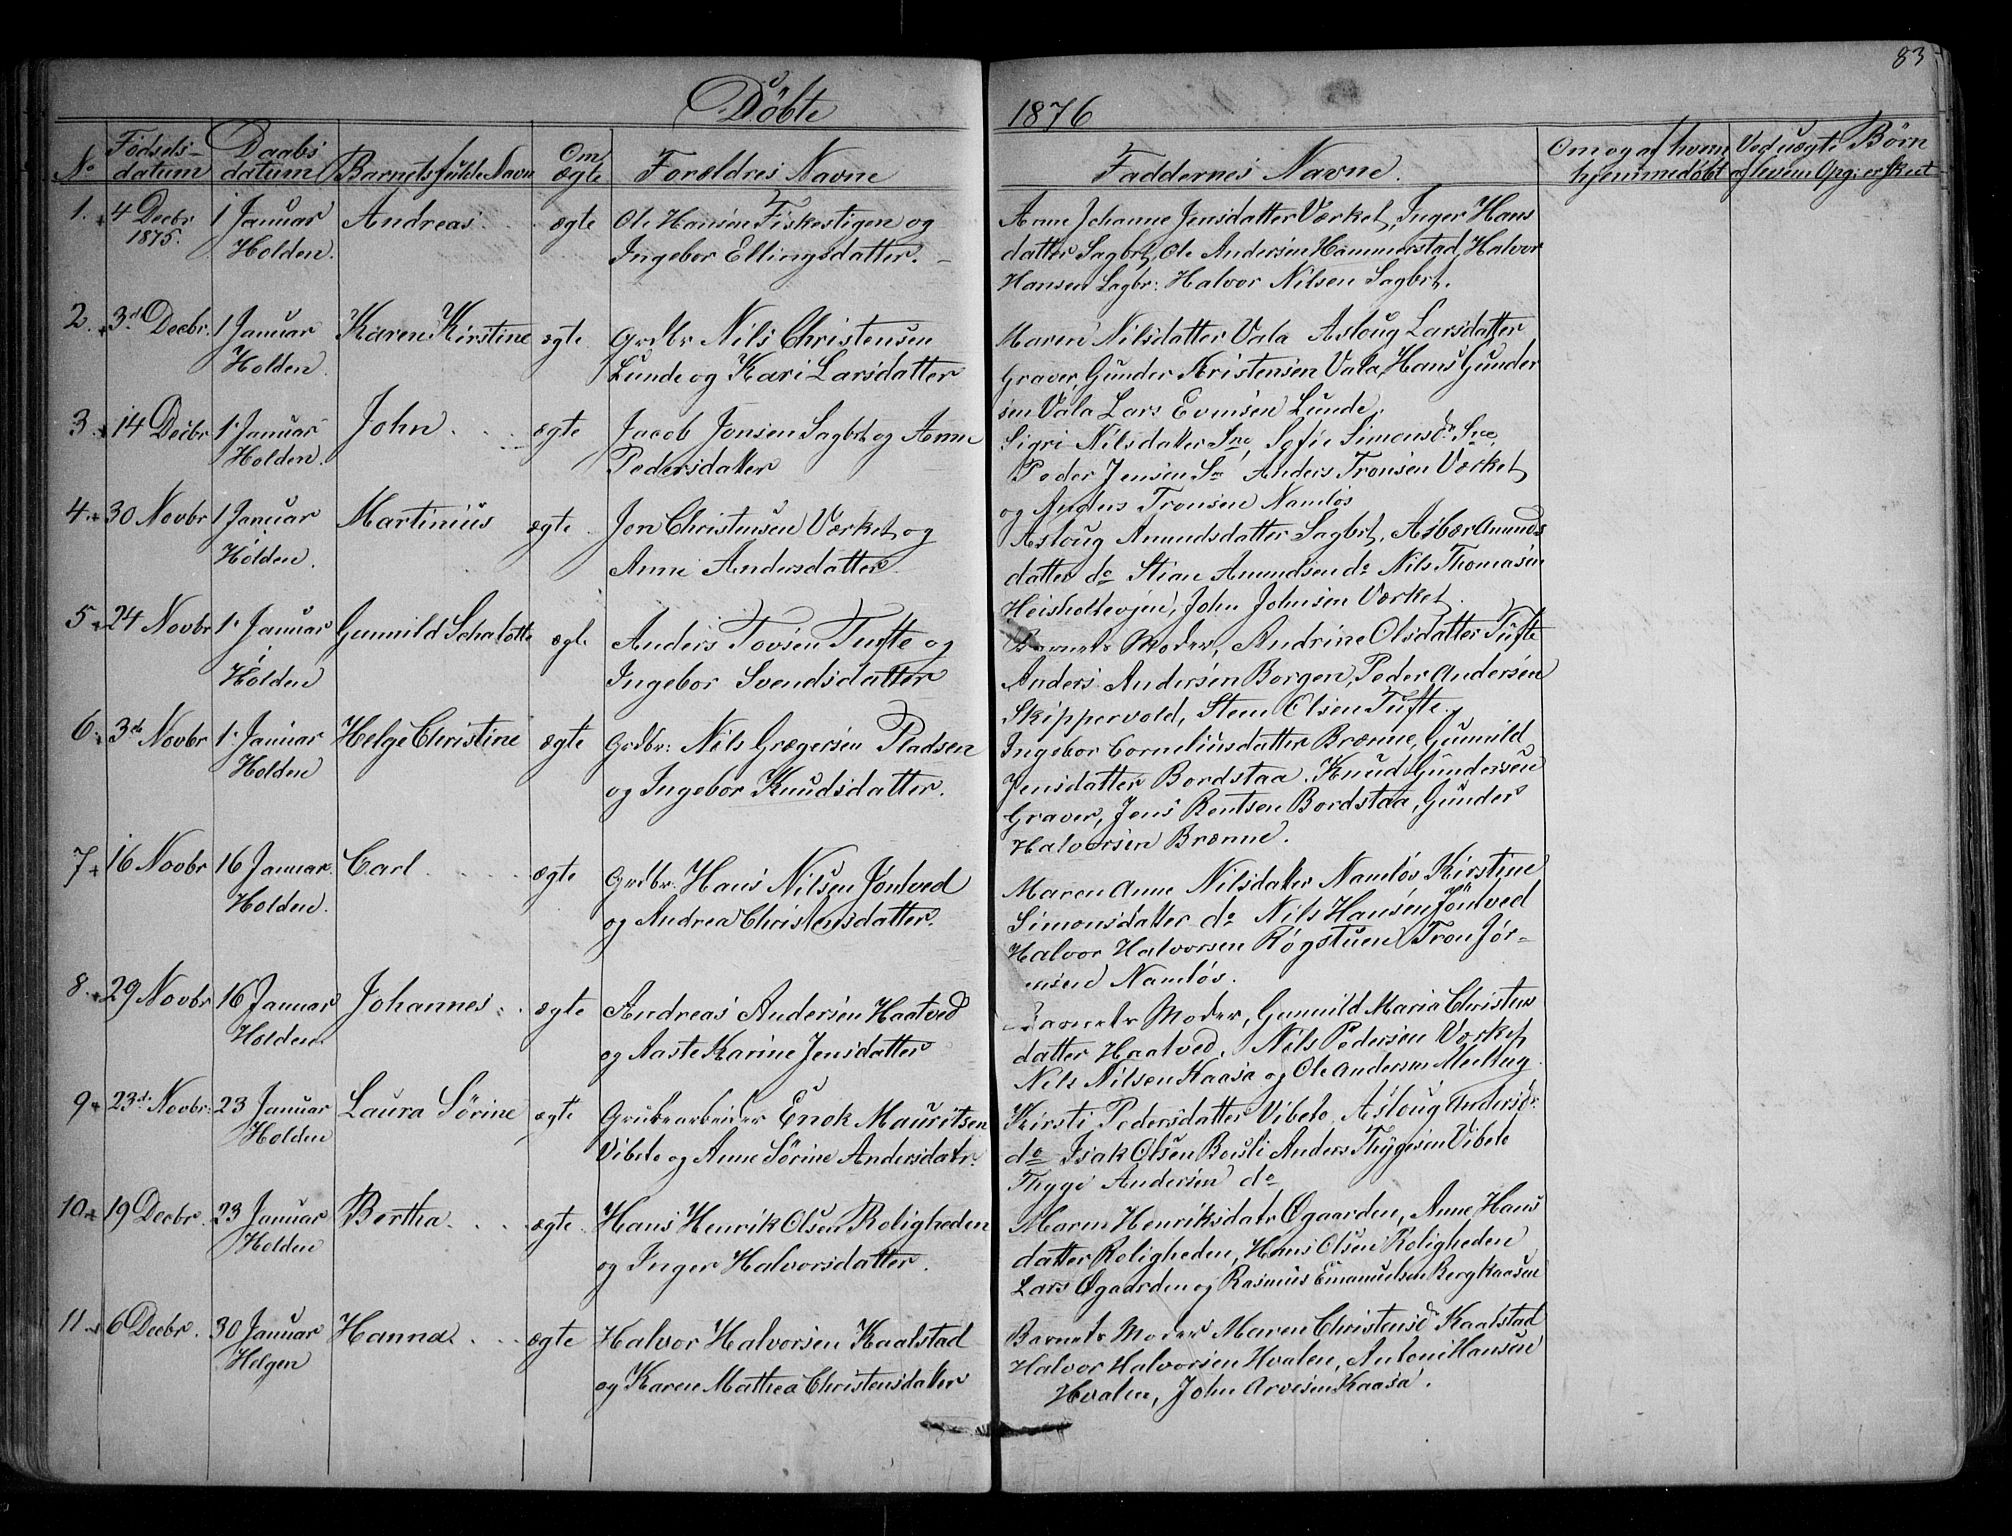 83
Döbte
1876
No
Födsels-
datum
Daabs
datum
Barnets fulde Navn
Om
ægte
Forældres Navne
Faddernes Navne.
Om og af hvem
hjemmedöbt
Ved uægte Börn
af hvem Opg: er skeet
1. 4 Decbr 1 Januar Andreas ægte Ole Hansen Fiskestigen og
1875. Holden. Ingebor Ellingsdatter.
Anne Johanne Jensdatter Værket, Inger Hans
datter Sagbrt, Ole Andersen Hammerstad, Halvor
Hansen Sagbr: Halvor Nilsen Sagbrt.
2. 3d Decbr. 1 Januar Karen Kirstine ægte Grdbr Nils Christensen
Holden. Lunde og Kari Larsdatter
Maren Nilsdatter Vala Asloug Larsdatter
Graver, Gunder Kristensen Vala, Hans Gunder
sen Vala Lars Evensen Lunde.
3. 14 Decbr 1 Januar John ægte Jacob Jensen Sagbrt og Anne
Holden. Pedersdatter
Sigri Nilsdatter Sne, Sofie Simonsdr Sne,
Peder Jensen Sne Anders Tronsen Værket
og Anders Tronsen Namlös
4. 30 Novbr 1 Januar Martinius ægte Jon Christensen Værket og
Holden. Anne Andersdatter
Asloug Amundsdatter Sagbrt, Asbær Amunds
datter do Stian Amundsen do Nils Thomasen
Heisholtvejen, John Johnsen Værket.
5. 24 Novbr 1 Januar Gunnild Schalotte ægte Anders Tovsen Tufte og
Holden Ingebor Svendsdatter
Barnets Moder, Andrine Olsdatter Tufte
Anders Andersen Borgen, Peder Andersen
Skippervold, Steen Olsen Tufte.
6. 3d Novbr 1. Januar Helge Christine ægte Grdbr: Nils Grægersen Pladsen
Holden og Ingebor Knudsdatter.
Ingebor Corneliusdatter Brænne, Gunnild
Jensdatter Bordstaa. Knud Gundersen
Graver, Jens Bentsen Bordstaa, Gunder
Halvorsen Brænne.
7. 16 Novbr 16 Januar Carl ægte Grdbr: Hans Nilsen Jöntved
Holden. og Andrea Christensdatter.
Maren Anne Nilsdatter Namlös Kirstine
Simonsdatter do Nils Hansen Jöntved
Halvor Halvorsen Rögstuen, Tron Jör-
ensen Namlös.
8. 29 Novbr 16 Januar Johannes ægte Andreas Andersen Haatved
Holden. og Aaste Karine Jensdatter
Barnets Moder, Gunnild Maria Christens
datter Haatved, Nils Pedersen Værket
Nils Nilsen Kaasa og Ole Andersen
9. 23d Novbr. 23 Januar Laura Sörine ægte Grubearbeider Enok Mauritsen
Holden Vibeto og Anne Sörine Andersdatr.
Kirsti Pedersdatter Vibeto, Asloug Andersdr.
do Isak Olsen Bousli Anders Thygesen Vibeto
Thyge Andersen do
10. 19 Decbr. 23 Januar Bertha ægte Hans Henrik Olsen Roligheden
Holden og Inger Halvorsdatter.
Maren Henriksdatr Øgaarden, Anne Hans
datter Roligheden, Hans Olsen Roligheden
Lars Øgaarden og Rasmus Emanuelsen Bergkaasen
11. 6 Decbr. 30 Januar Hanna ægte Halvor Halvorsen Kaalstad
Helgen og Karen Mathea Christensdatter
Barnets Moder Maren Christensd Kaalstad
Halvor Halvorsen Hvalen, Antoni Hansen
Hvalen, John Arvesen Kaasa.